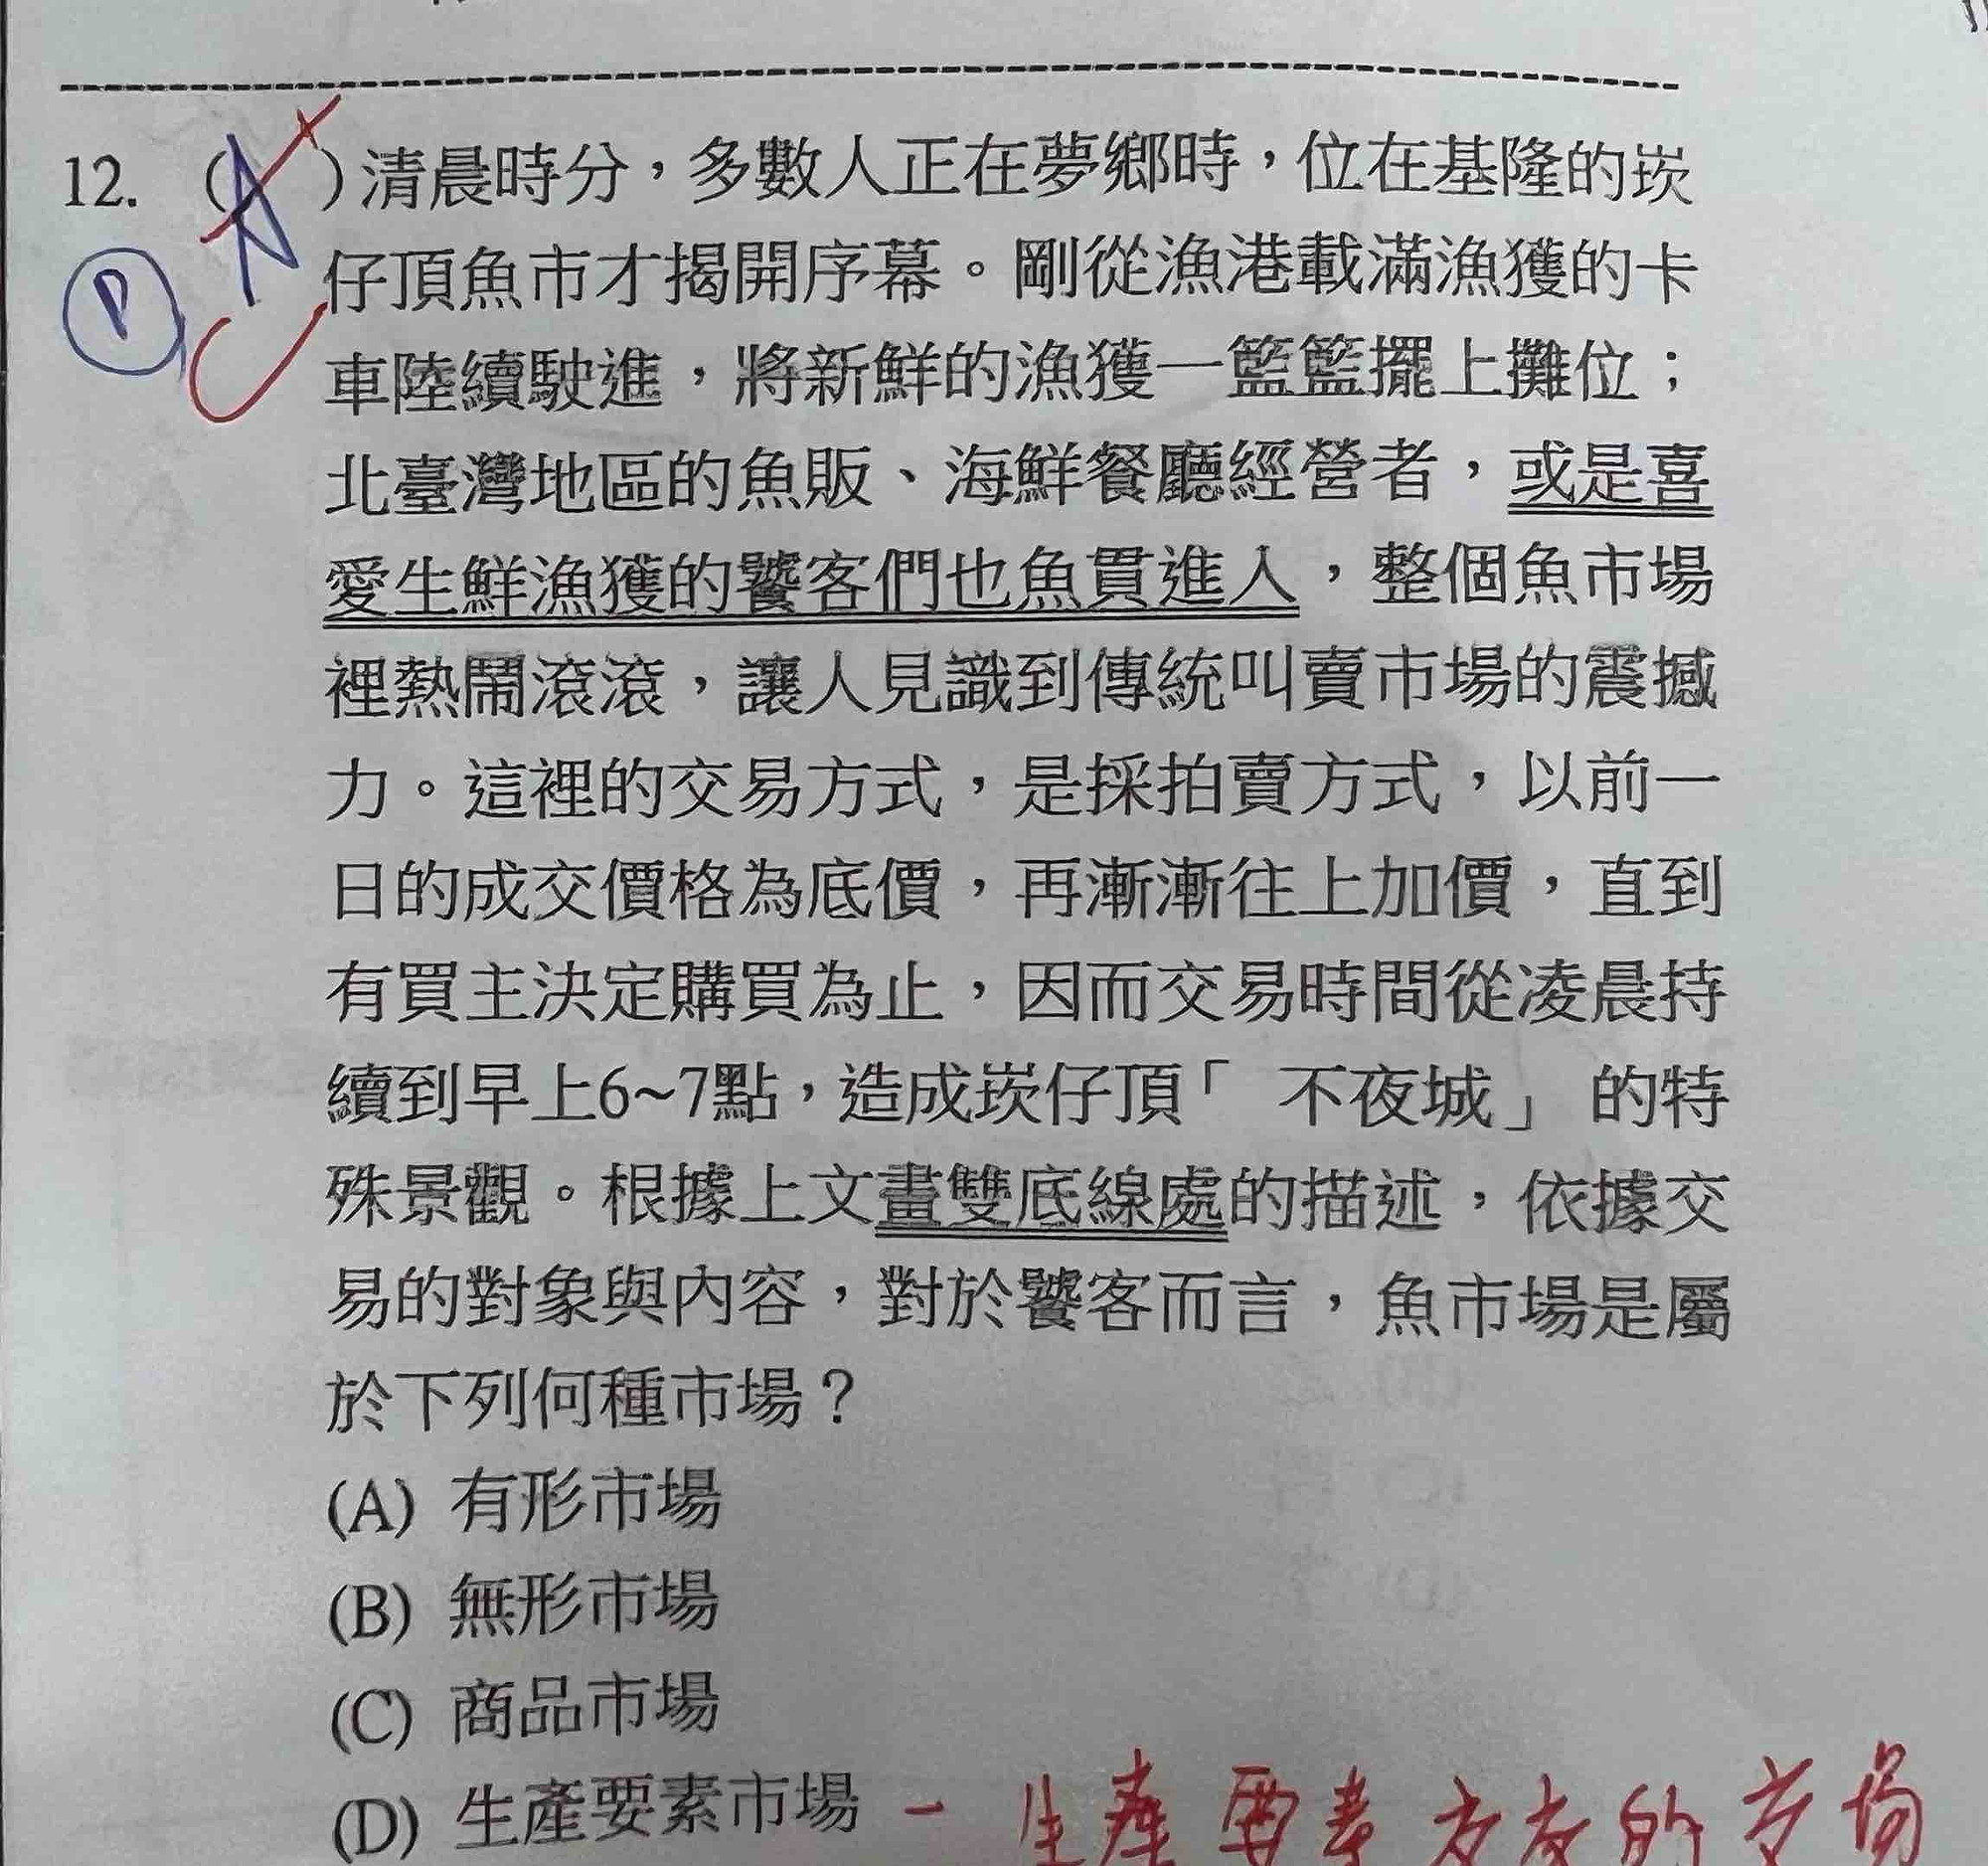 12. ( A )清晨時分，多數人正在夢鄉時，位在基隆的崁
D
仔頂魚市才揭開序幕。剛從漁港載滿漁獲的卡
車陸續駛進，將新鮮的漁獲一籃籃擺上攤位；
北臺灣地區的魚販、海鮮餐廳經營者，或是喜
愛生鮮漁獲的饕客們也魚貫進入，整個魚市場
裡熱鬧滾滾，讓人見識到傳統叫賣市場的震撼
力。這裡的交易方式，是採拍賣方式，以前一
日的成交價格為底價，再漸漸往上加價，直到
有買主決定購買為止，因而交易時間從凌晨持
續到早上6~7點，造成崁仔頂「 不夜城」 的特
殊景觀。根據上文畫雙底線處的描述，依據交
易的對象與內容，對於饕客而言，魚市場是屬
於下列何種市場？
(A) 有形市場
(B) 無形市場
(C) 商品市場
(D) 生產要素市場 - 生產要素交友的市場